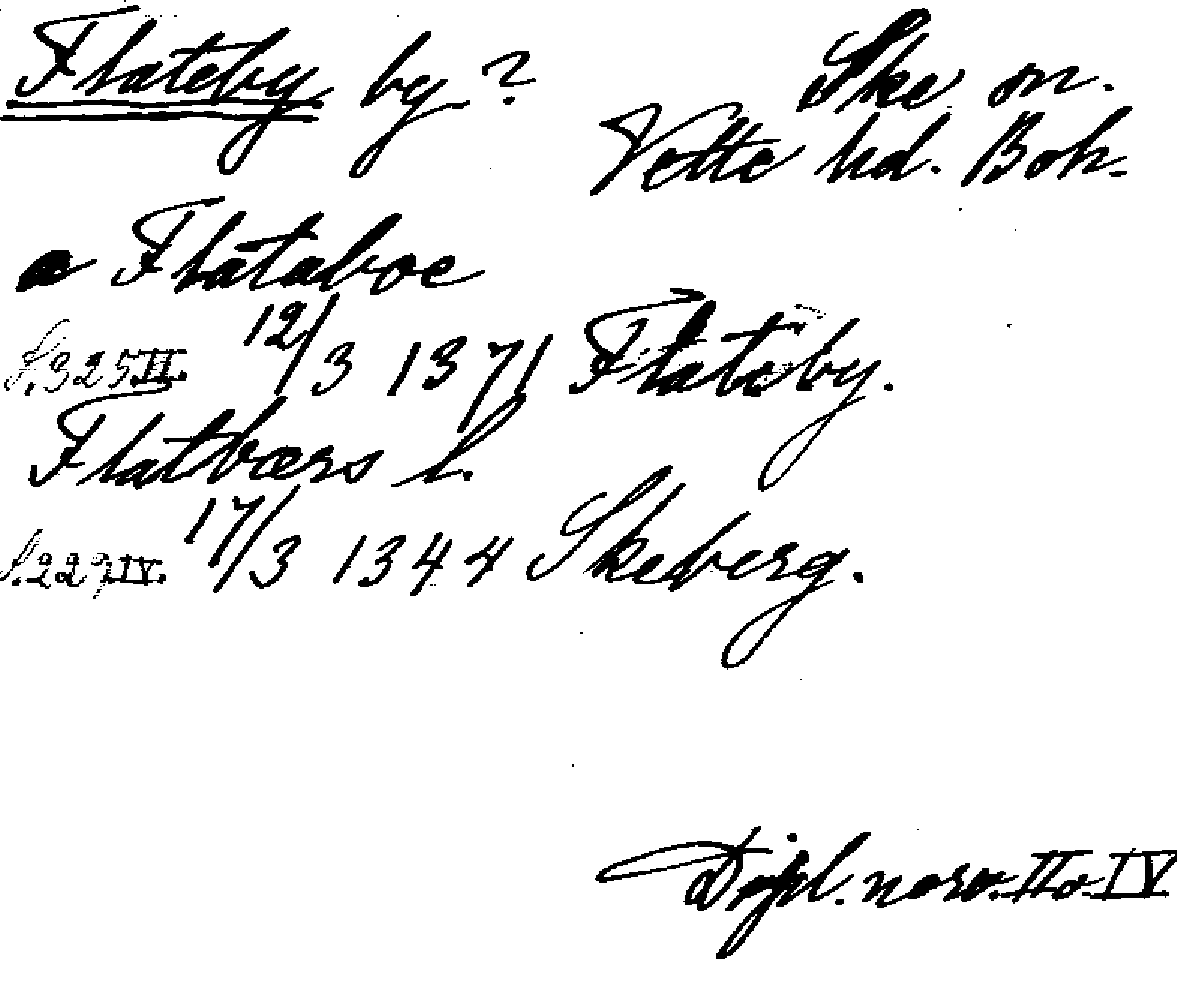 Flateby by? Ske sn.
Vette hd. Boh.
a Flataboe
S. 325 II. 12/3 1371 Flateby.
Flatbœrs l.
S. 229 IV. 17/3 1344 Skeberg.
Dipl. norv. II o. IV